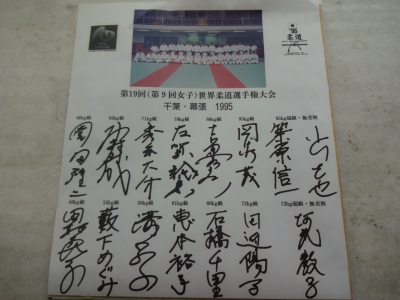 第19回(第9回女子)世界柔道選手権大会
千葉・幕張 1995
60kg級 65kg級 71kg級 78kg級 86kg級 95kg級 95kg超級・無差別
園田隆二 秀島大介 吉田秀彦 岡泉茂 篠原信一
48kg級 52kg級 56kg級 61kg級 66kg級 72kg級 72kg超級・無差別
田村亮子 薮下めぐみ 恵本裕子 石橋千里 田辺陽子 阿武教子